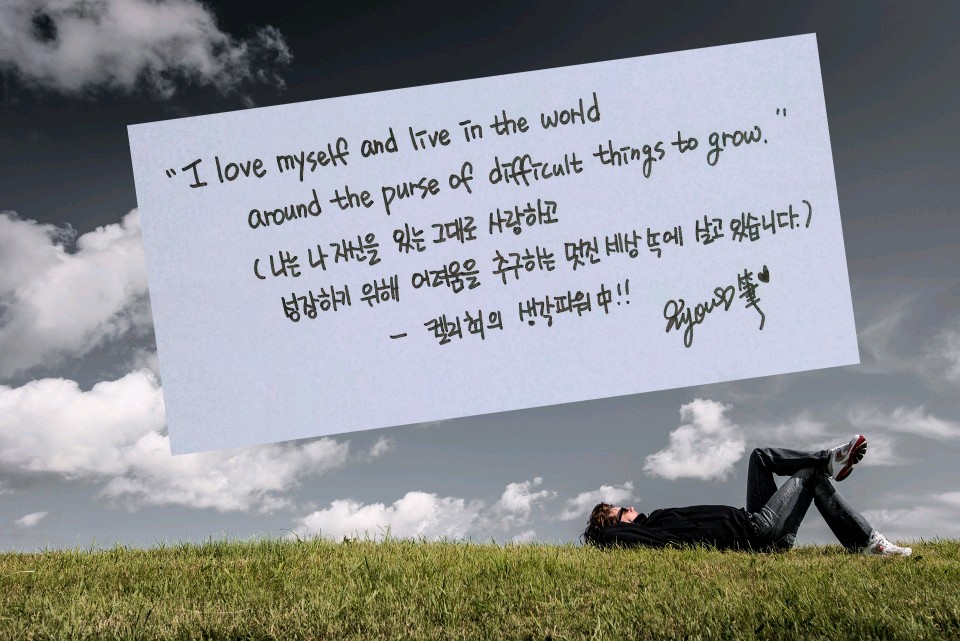 "I love myself and live in the world
around the purse of difficult things to grow."
(나는 나 자신을 있는 그대로 사랑하고
성장하기 위해 어려움을 추구하는 멋진 세상 속에 살고 있습니다.)
- 켈리최의 생각파워 中!!
Kyou♡筆♥